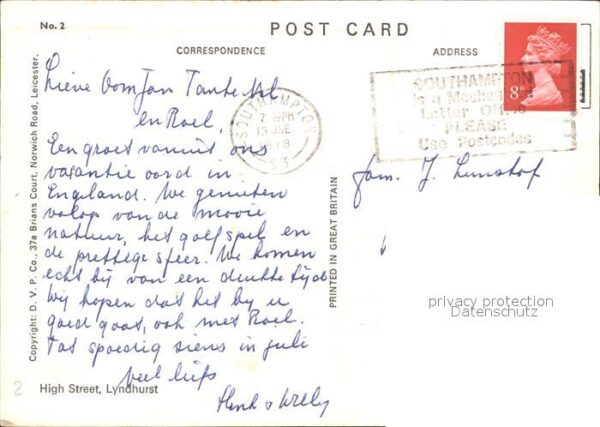 No. 2
POST CARD
CORRESPONDENCE
ADDRESS
Lieve Oom Jan Tante Nel
en Roel,
Een groet vanuit ons
vacantie oord in
Engeland. We genieten
volop van de mooie
natuur, het golfspel en
de prettige sfeer. We komen
echt bij van een drukke tijd
Wij hopen dat het bij u
goed gaat, ook met Roel.
Tot spoedig ziens in juli
Veel liefs
Henk v Willy
SOUTHAMPTON
7 PM
13 JNE
1978
SOUTHAMPTON
is a Mechanised
Letter Office
PLEASE
Use Postcodes
8P
Fam. J. Lunshof
privacy protection
Datenschutz
PRINTED IN GREAT BRITAIN
Copyright: D. V. P. Co., 37a Brians Court, Norwich Road, Leicester.
2
High Street, Lyndhurst